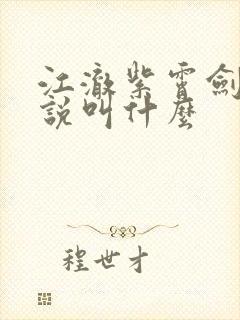 江澈紫霄劍
說叫什麼
程世才